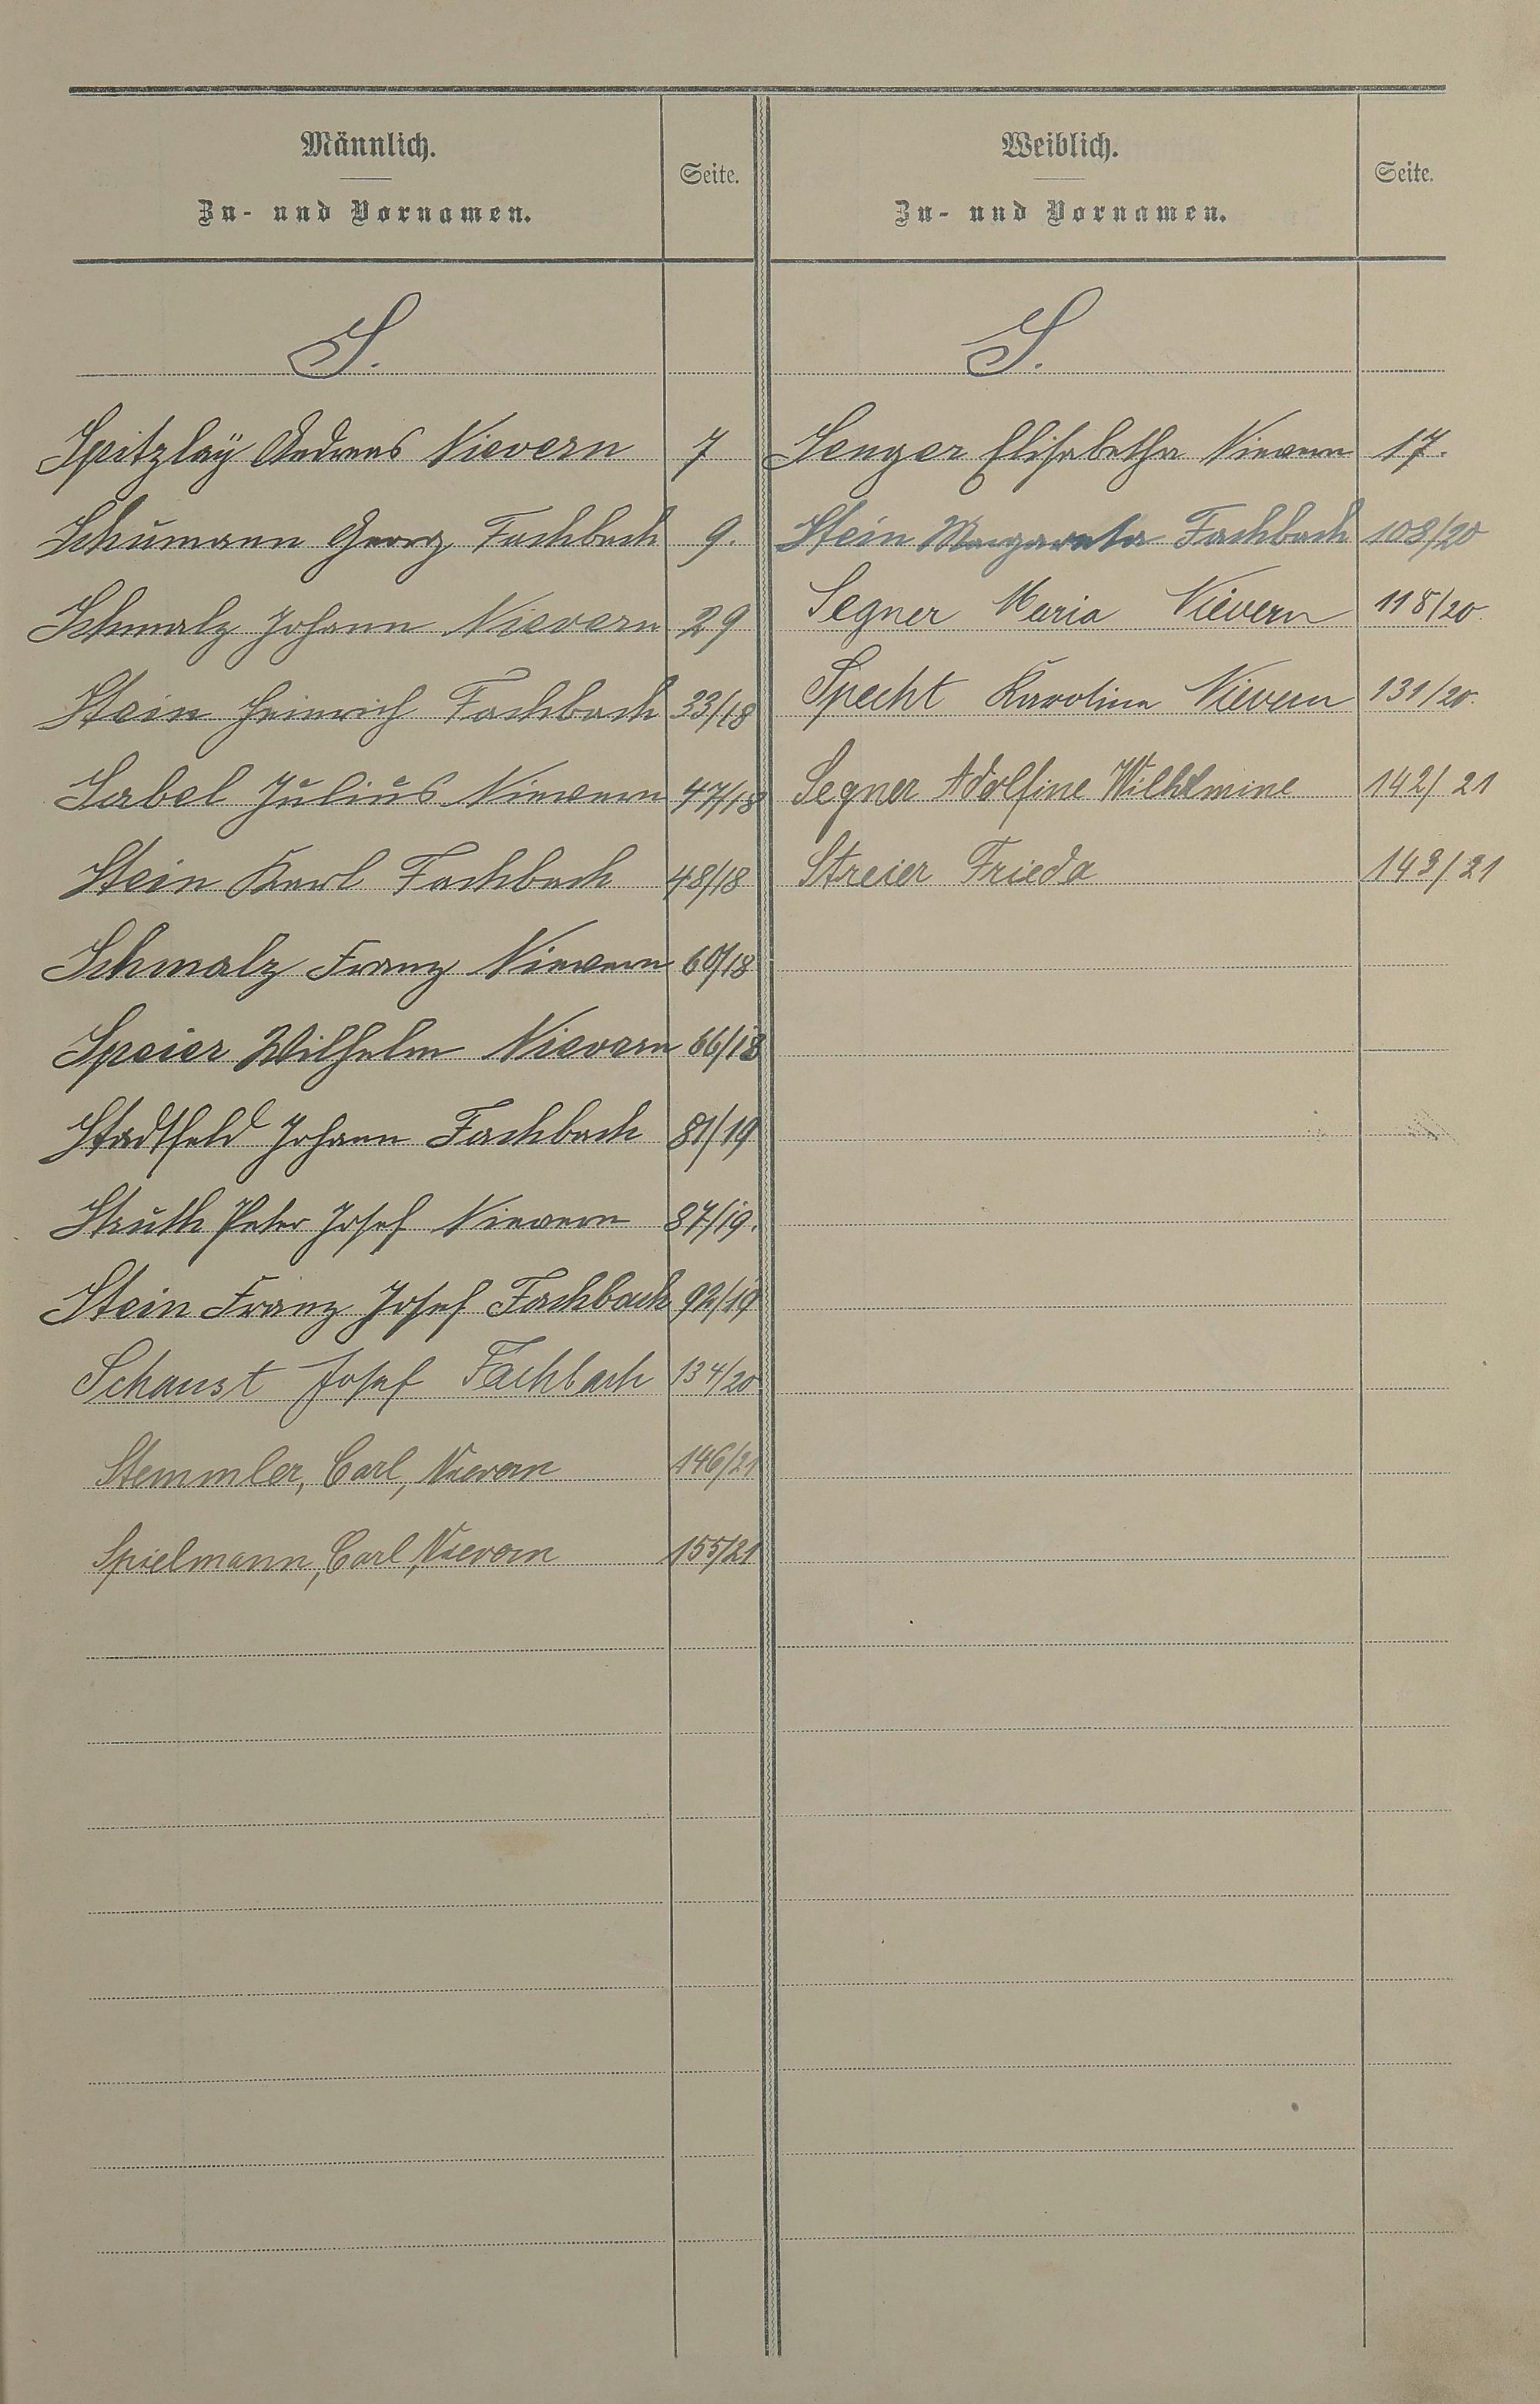 Männlich.
Zu- und Vornamen.
Seite.
S.
Spitzlaÿ Andreas Nievern 7
Schumann Georg Fachbach 9.
Schmalz Johann Nievern 29
Stein Heinrich Fachbach 33/18
Sabel Julius Nievern 47/18
Stein Karl Fachbach 48/18
Schmalz Franz Nievern 60/18
Speier Wilhelm Nievern 66/18
Stadtfeld Johann Fachbach 81/19
Struth Peter Josef Nievern 87/19.
Stein Franz Josef Fachbach 92/19
Schaust Josef Fachbach 134/20
Stemmler, Carl, Nievern 146/21
Spielmann, Carl, Nievern 155/21
Weiblich.
Zu- und Vornamen.
Seite.
S.
Senger Elisabetha Nievern 17.
Stein Margareta Fachbach 108/20
Segner Maria Nievern 118/20.
Specht Karolina Nievern 131/20.
Segner Adolfine Wilhelmine 142/21
Streier Frieda 143/21